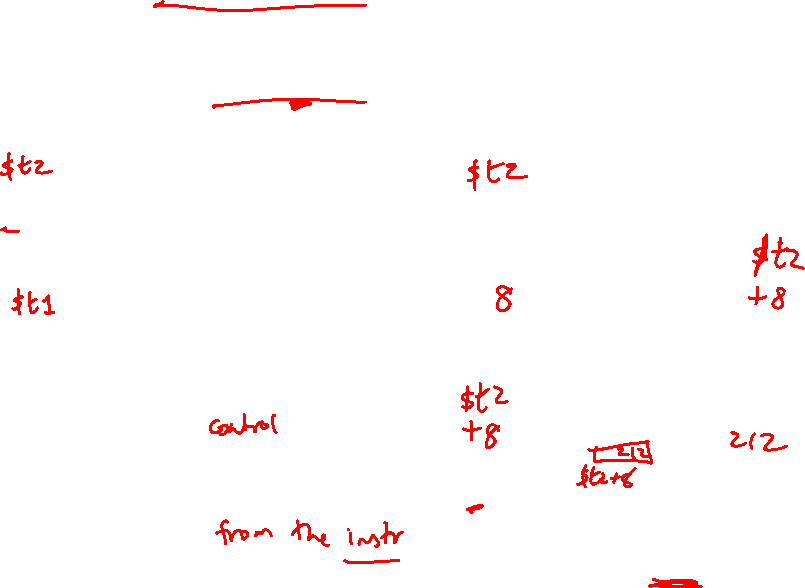 $t2
$t2
$t2
+8
$t1
8
$t2
+8
control
212
212
$t2+8
from the instr